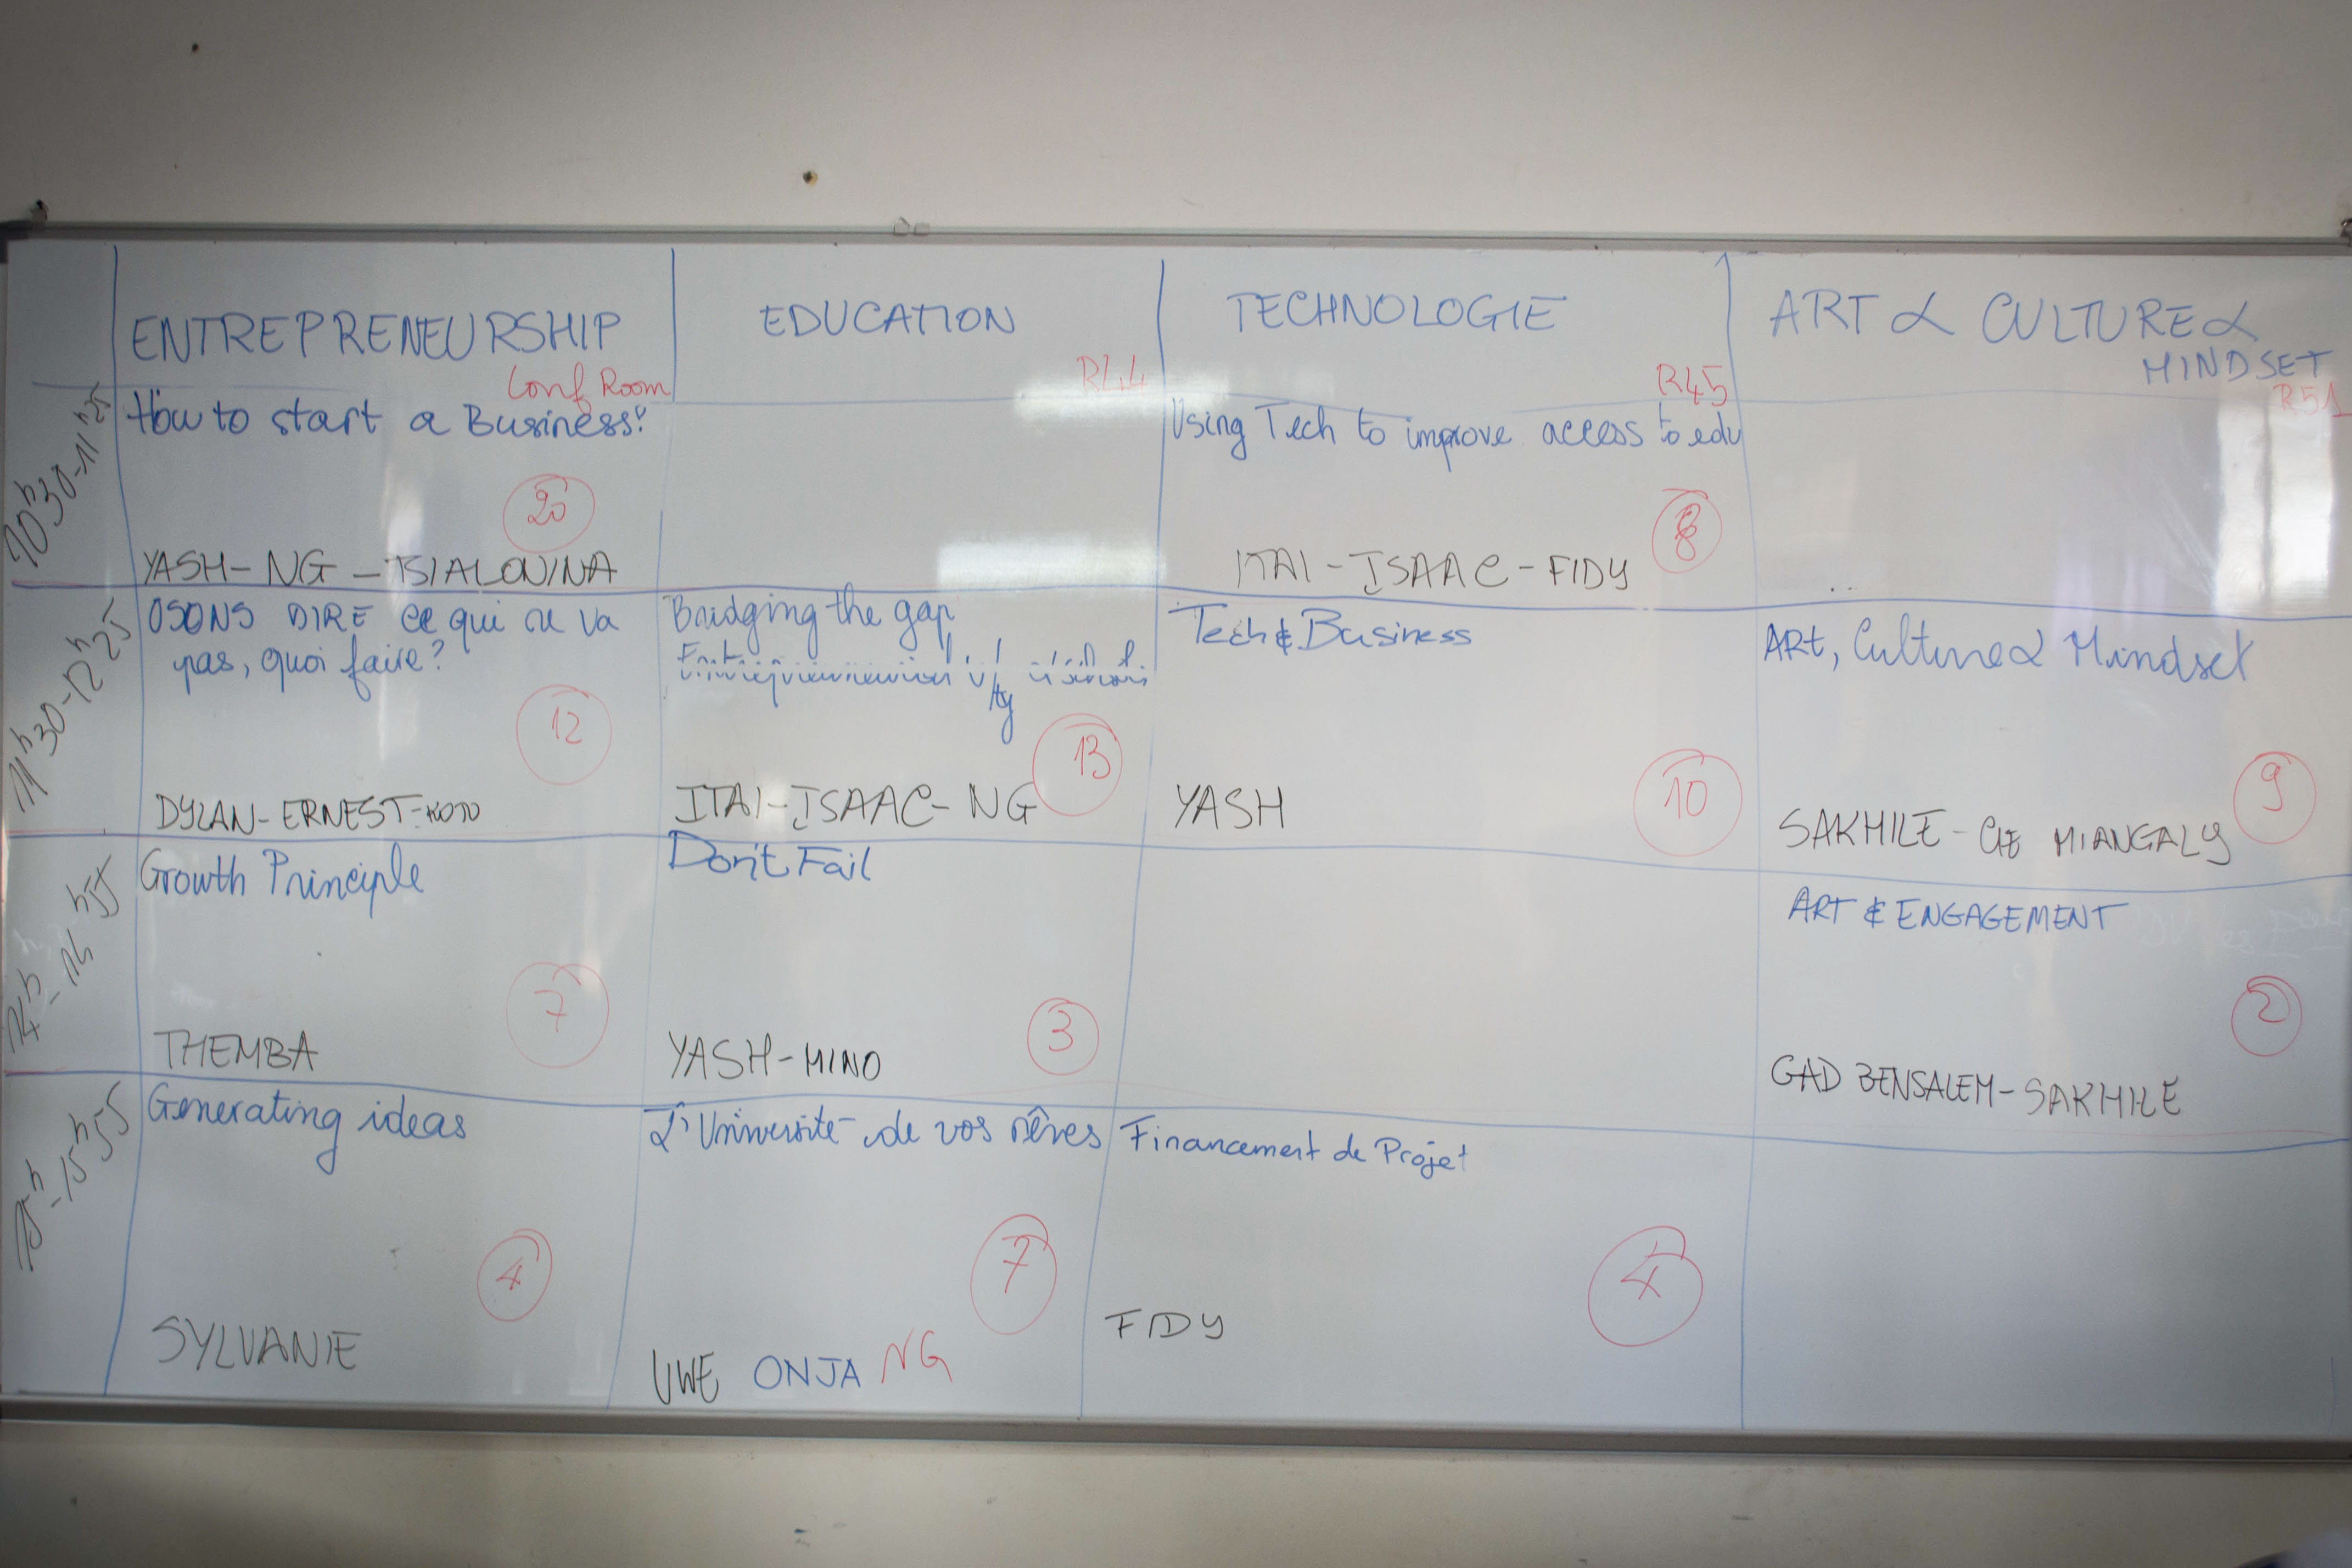 ENTREPRENEURSHIP
Conf Room
EDUCATION
R44
TECHNOLOGIE
R45
ART & CULTURE &
MINDSET
R51
10h30-11h25
How to start a Business?
20
YASH-NG-TSIALONINA
Using Tech to improve access to edu
8
ITAI-ISAAC-FIDY
11h30-12h25
OSONS DIRE ce qui ne va
pas, quoi faire?
12
DYLAN-ERNEST-KOTO
Bridging the gap
13
ITAI-ISAAC-NG
Tech & Business
10
YASH
Art, Culture & Mindset
9
SAKHILE-CIE MIANGALY
Growth Principle
7
THEMBA
Don't Fail
3
YASH-MINO
ART & ENGAGEMENT
2
GAD BENSALEM-SAKHILE
15h-15h55
Generating ideas
4
SYLVANIE
L'Université de vos rêves
7
UWE ONJA NG
Financement de Projet
FIDY